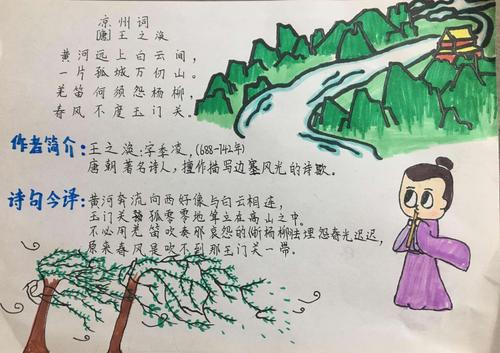 凉州词
[唐]王之涣
黄河远上白云间，
一片孤城万仞山。
羌笛何须怨杨柳，
春风不度玉门关。
作者简介：王之涣：字季凌，(688-742年)
唐朝著名诗人，擅作描写边塞风光的诗歌。
诗句今译：黄河奔流向西好像与白云相连，
玉门关孤零零地耸立在高山之中。
不必用羌笛吹奏那哀怨的《折杨柳》去埋怨春光迟迟，
原来春风是吹不到那玉门关一带。